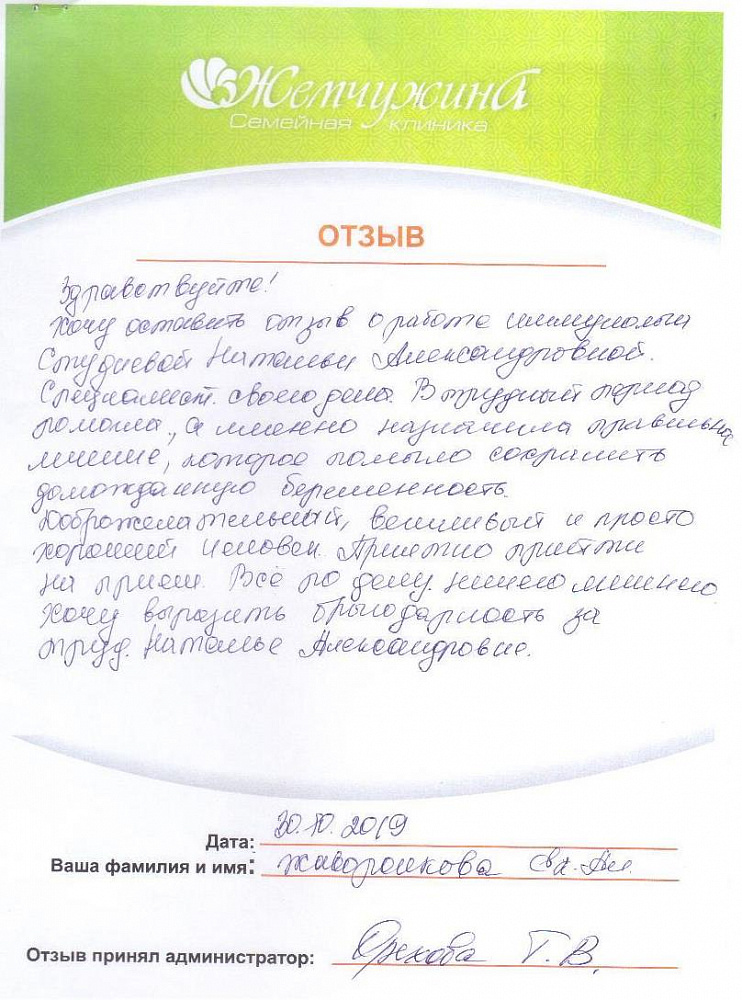 Жемчужина
Семейная клиника
ОТЗЫВ
Здравствуйте!
Хочу оставить отзыв о работе иммунолога
Студиевой Натальи Александровной.
Специалист своего дела. В трудный период
помогла, а именно назначила правильное
лечение, которое помогло сохранить
долгожданную беременность.
Доброжелательный, вежливый и просто
хороший человек. Приятно прийти
на прием. Всё по делу, ничего лишнего
Хочу выразить благодарность за
труд. Наталье Александровне.
Дата: 30.10.2019
Ваша фамилия и имя: Жаворонкова
Отзыв принял администратор: Орехова Т. В.